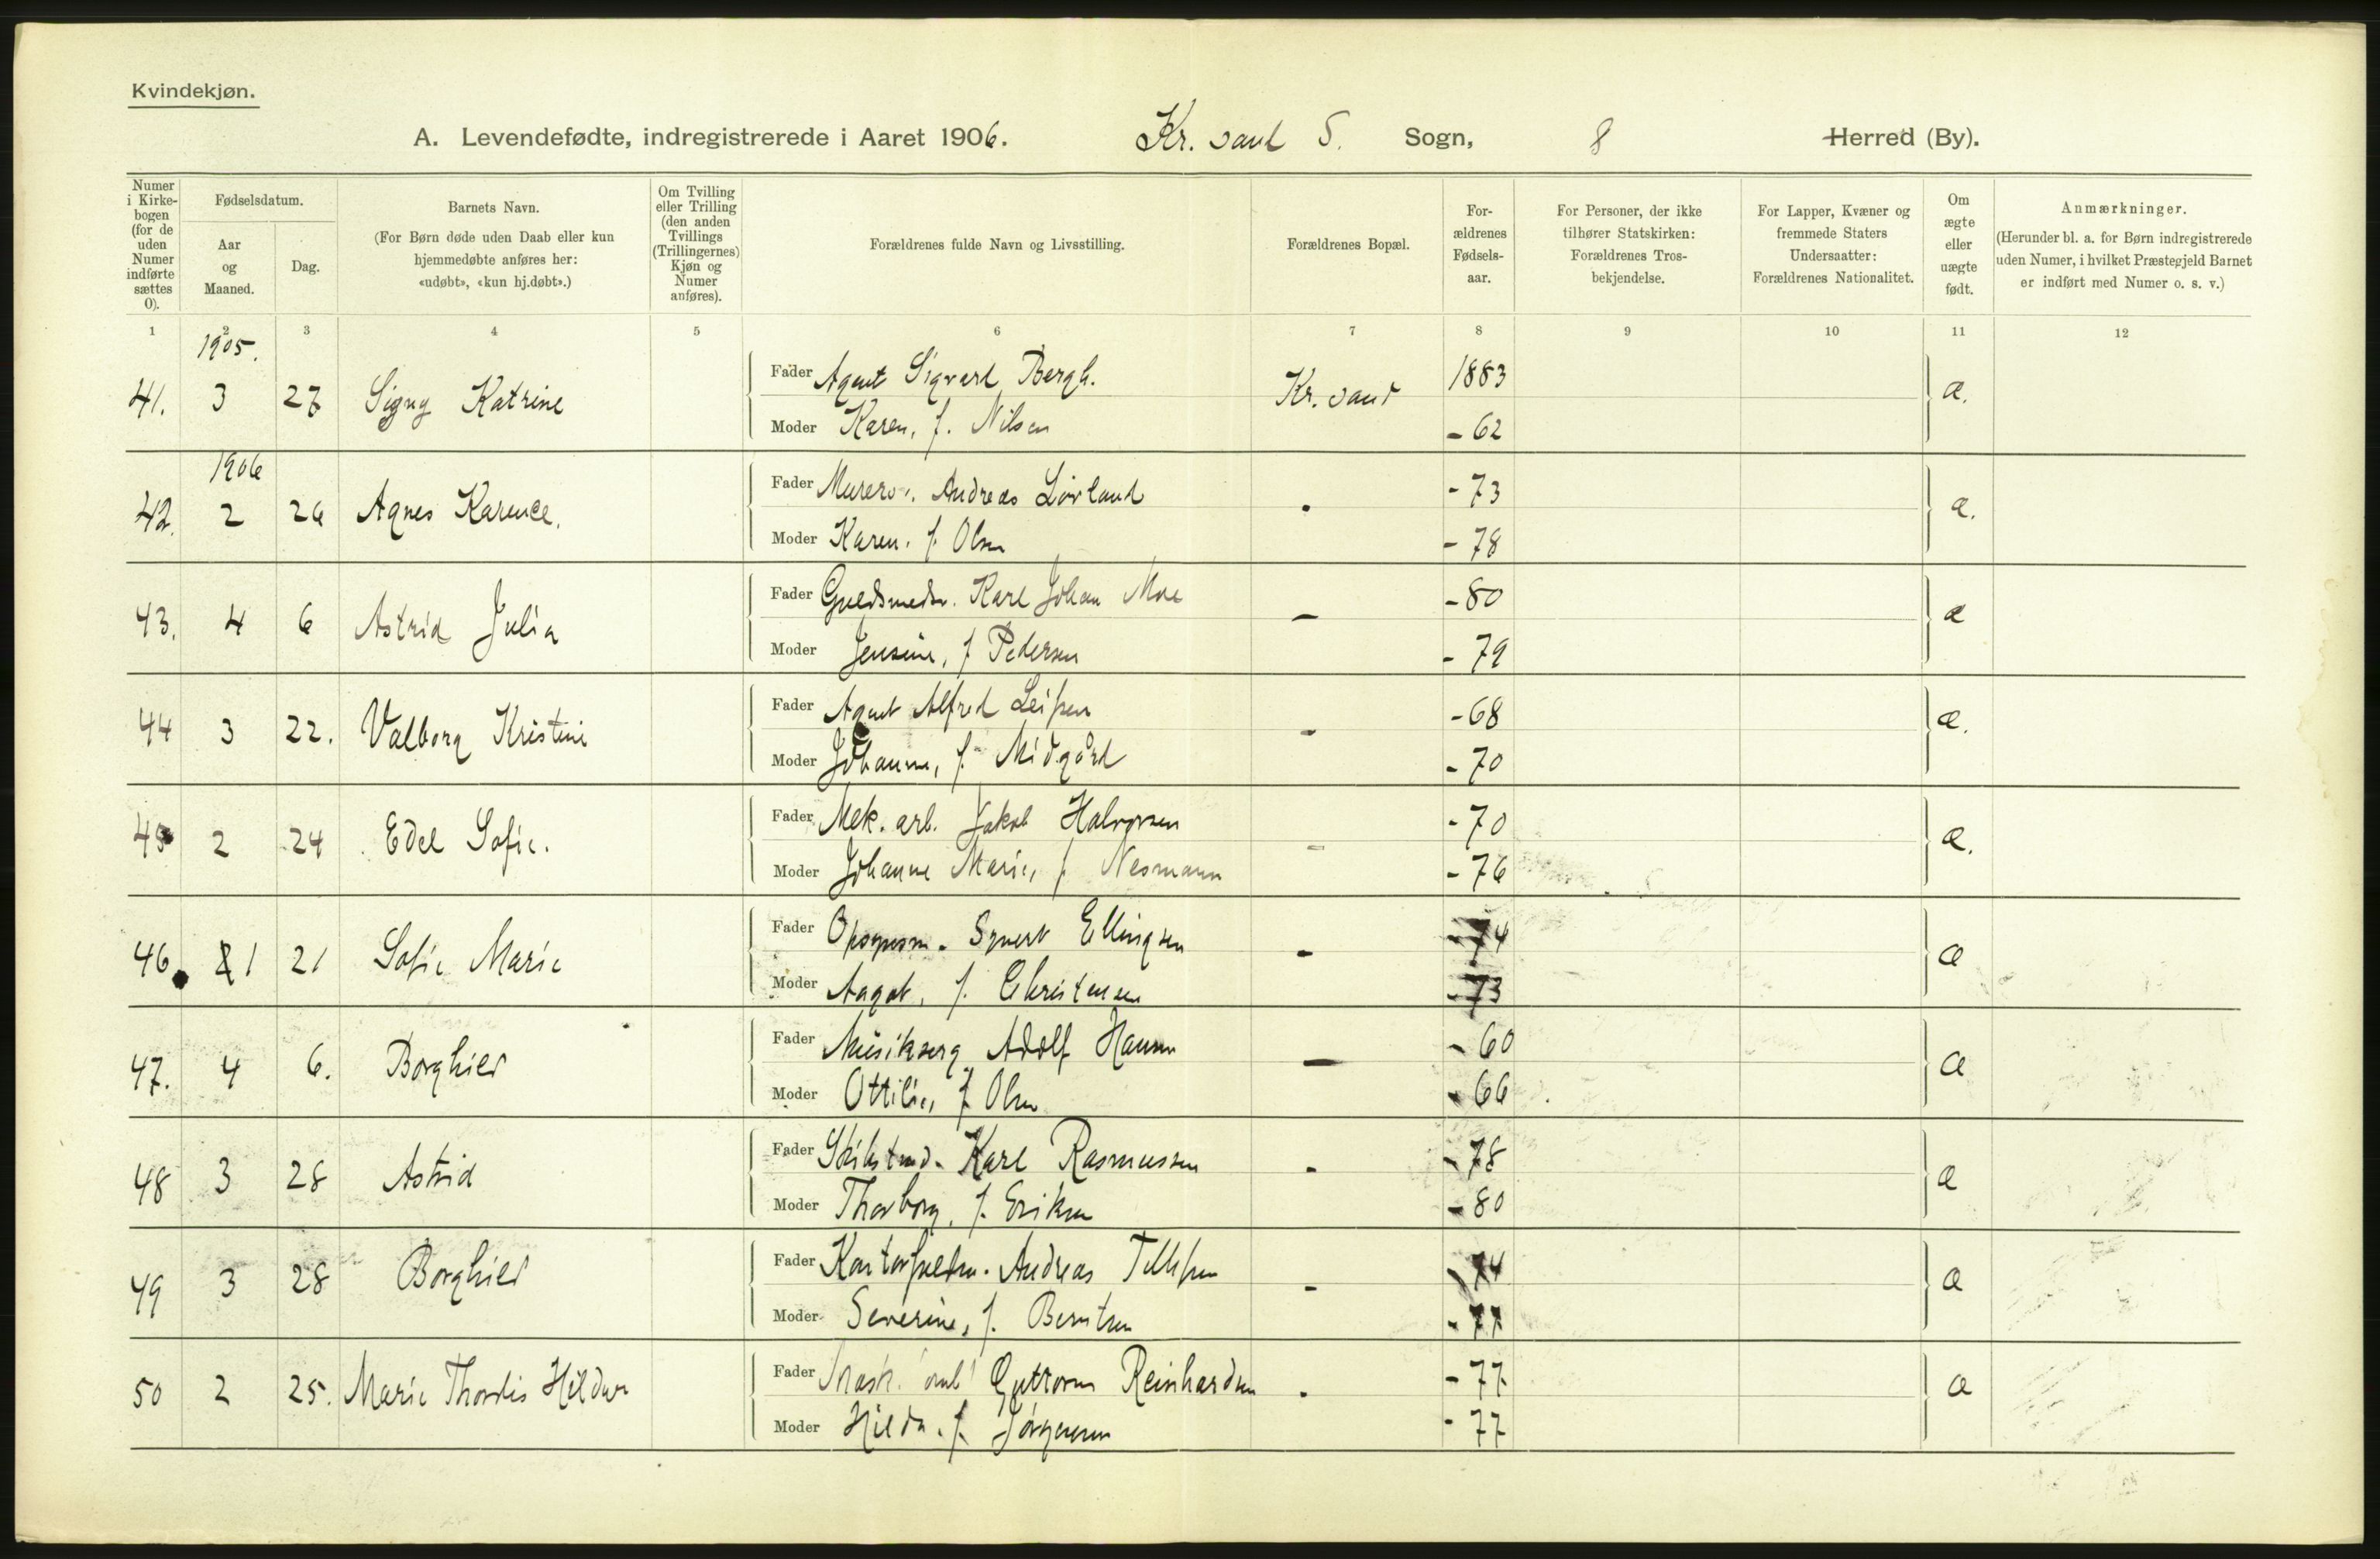 Kvindekjøn.
A. Levendefødte, indregistrerede i Aaret 1906. Kr. sand S. Sogn, 8 Herred (By).
Numer i Kirkebogen (for de uden Numer indførte sættes 0).
Fødselsdatum.
Aar og Maaned.
Dag.
Barnets Navn.
(For Børn døde uden Daab eller kun hjemmedøbte anføres her: «udøbt», «kun hj.døbt».)
Om Tvilling eller Trilling (den anden Tvillings (Trillingernes) Kjøn og Numer anføres).
Forældrenes fulde Navn og Livsstilling.
Forældrenes Bopæl.
For-ældrenes Fødsels-aar.
For Personer, der ikke tilhører Statskirken: Forældrenes Tros-bekjendelse.
For Lapper, Kvæner og fremmede Staters Undersaatter: Forældrenes Nationalitet.
Om ægte eller uægte født.
Anmærkninger.
(Herunder bl. a. for Børn indregistrerede uden Numer, i hvilket Præstegjeld Barnet er indført med Numer o. s. v.)
1 2 3 4 5 6 7 8 9 10 11 12
1905.
41. 3 27 Signy Katrine Fader Agent Sigvard Bergh. Kr. sand 1883 æ.
Moder Karen, f. Nilsen - 62
1906
42. 2 26 Agnes Karence. Fader Murersv. Andreas Løvland - 73 æ.
Moder Karen. f. Olsen - 78
43. 4 6 Astrid Julia Fader Guldsmedsv. Karl Johan Moe - - 80 æ
Moder Jensine, f Pedersen - 79
44 3 22. Valborg Kristine Fader Agent Alfred Leifsen - - 68 æ.
Moder Johanne, f. Midgård - 70
45 2 24 Edel Sofie. Fader Mek. arb. Jakob Halvorsen - - 70 æ.
Moder Johanne Marie, f Nesmann - 76
46. 1 21 Sofie Marie Fader Opsynsm. Syvert Ellingsen - - 74 æ
Moder Aagot, f. Christensen - 73
47. 4 6. Borghild Fader Musikserg Adolf Hansen - - 60 æ
Moder Ottilie, f Olsen - 66
48 3 28 Astrid Fader Karl Rasmussen - - 78 æ
Moder Thorborg, f. Eriksen - 80
49 3 28 Borghild Fader Andreas Tellefsen - - 74 æ
Moder Severine, f. Berntsen - 77
50 2 25. Marie Thordis Hildur Fader Mask. Guttorm Reinhardsen - - 77 æ
Moder Hilda. f. Jørgensen - 77